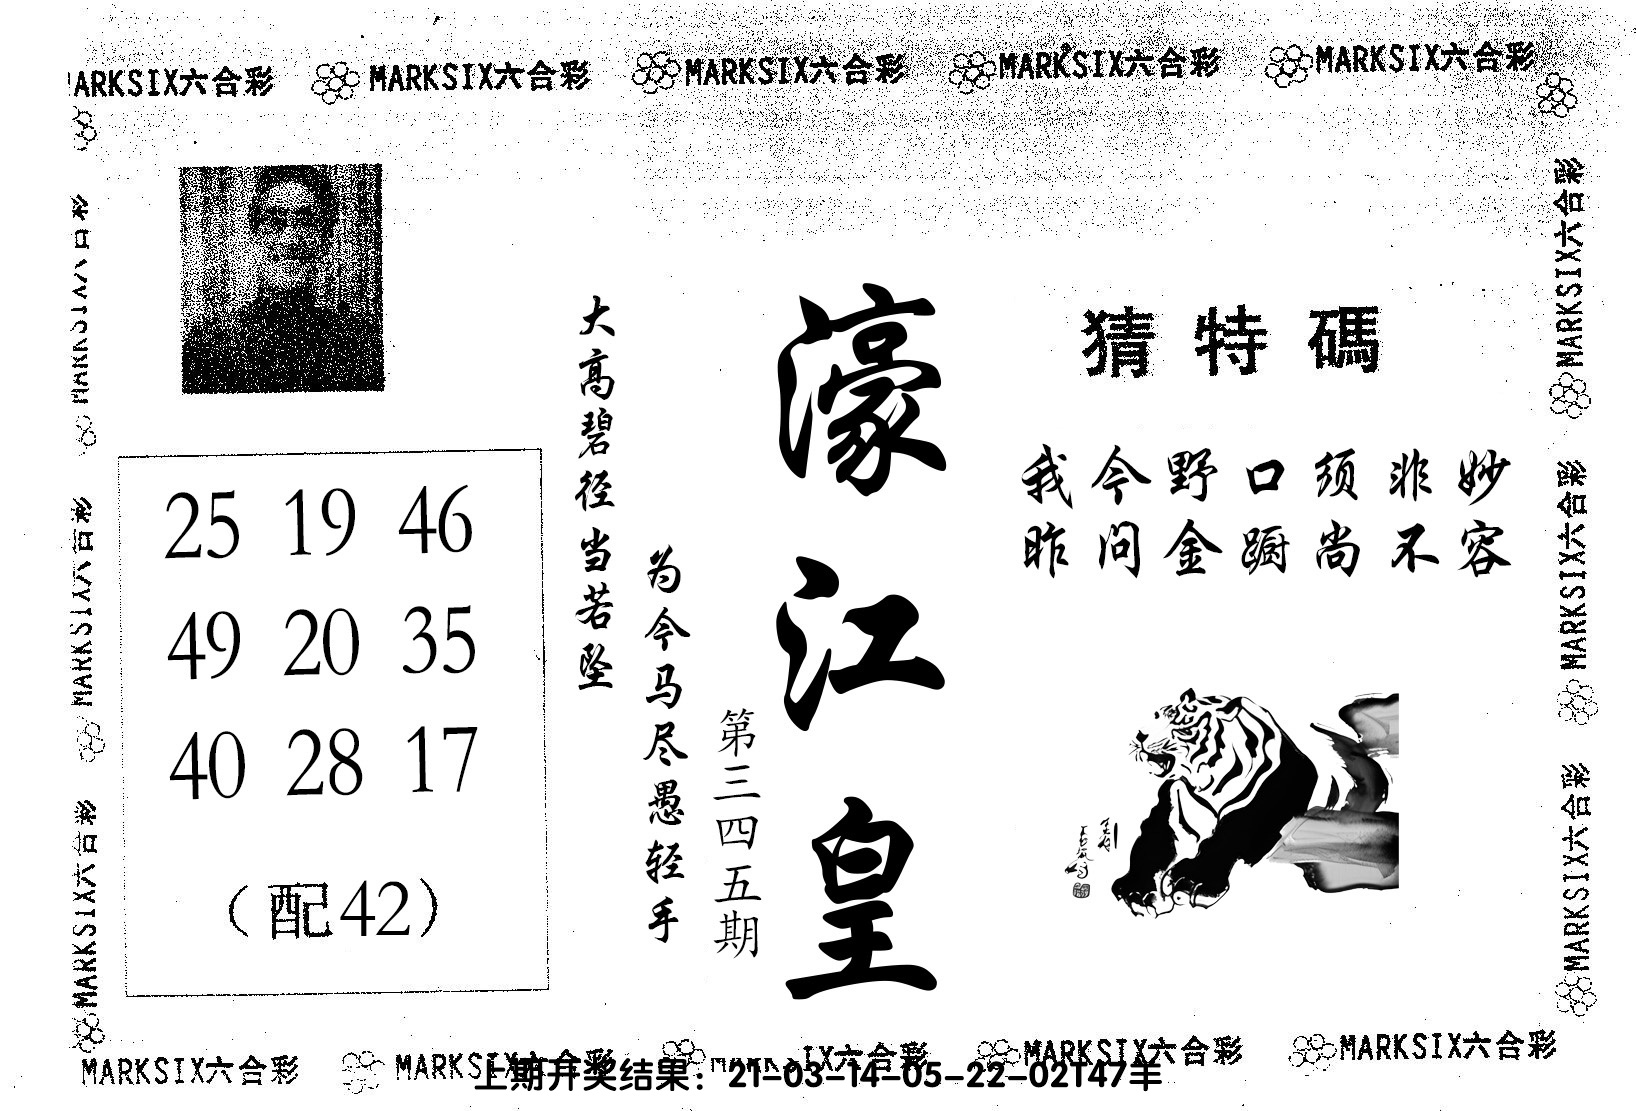 MARKSIX六合彩 MARKSIX六合彩 MARKSIX六合彩 MARKSIX六合彩 MARKSIX六合彩
猜特碼
我今野口须非妙
昨问金蹰尚不容
濠江皇
第三四五期
大高碧径当若坠
为今马尽愚轻手
25 19 46
49 20 35
40 28 17
（配42）
MARKSIX六合彩
MARKSIX六合彩
MARKSIX六合彩
MARKSIX六合彩
MARKSIX六合彩
MARKSIX六合彩
MARKSIX六合彩 MARKSIX六合彩 MARKSIX六合彩 MARKSIX六合彩 MARKSIX六合彩
上期开奖结果：21-03-14-05-22-02T47羊